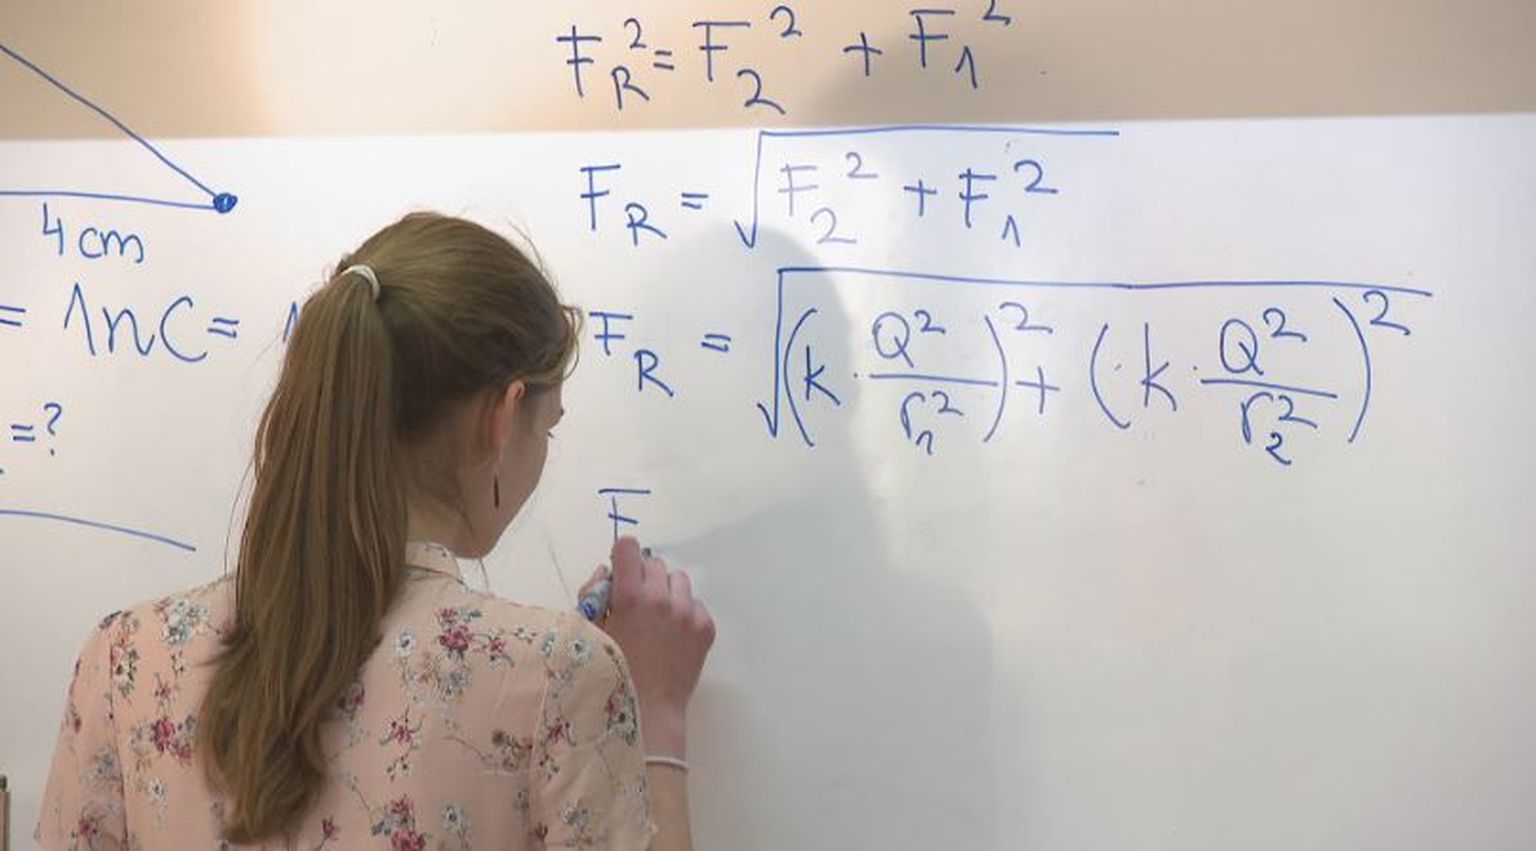 4 cm
= 1nC =
=?
F_R^2 = F_2^2 + F_1^2
F_R = √(F_2^2 + F_1^2)
F_R = √((k · Q^2/r_1^2)^2 + (k · Q^2/r_2^2)^2)
F